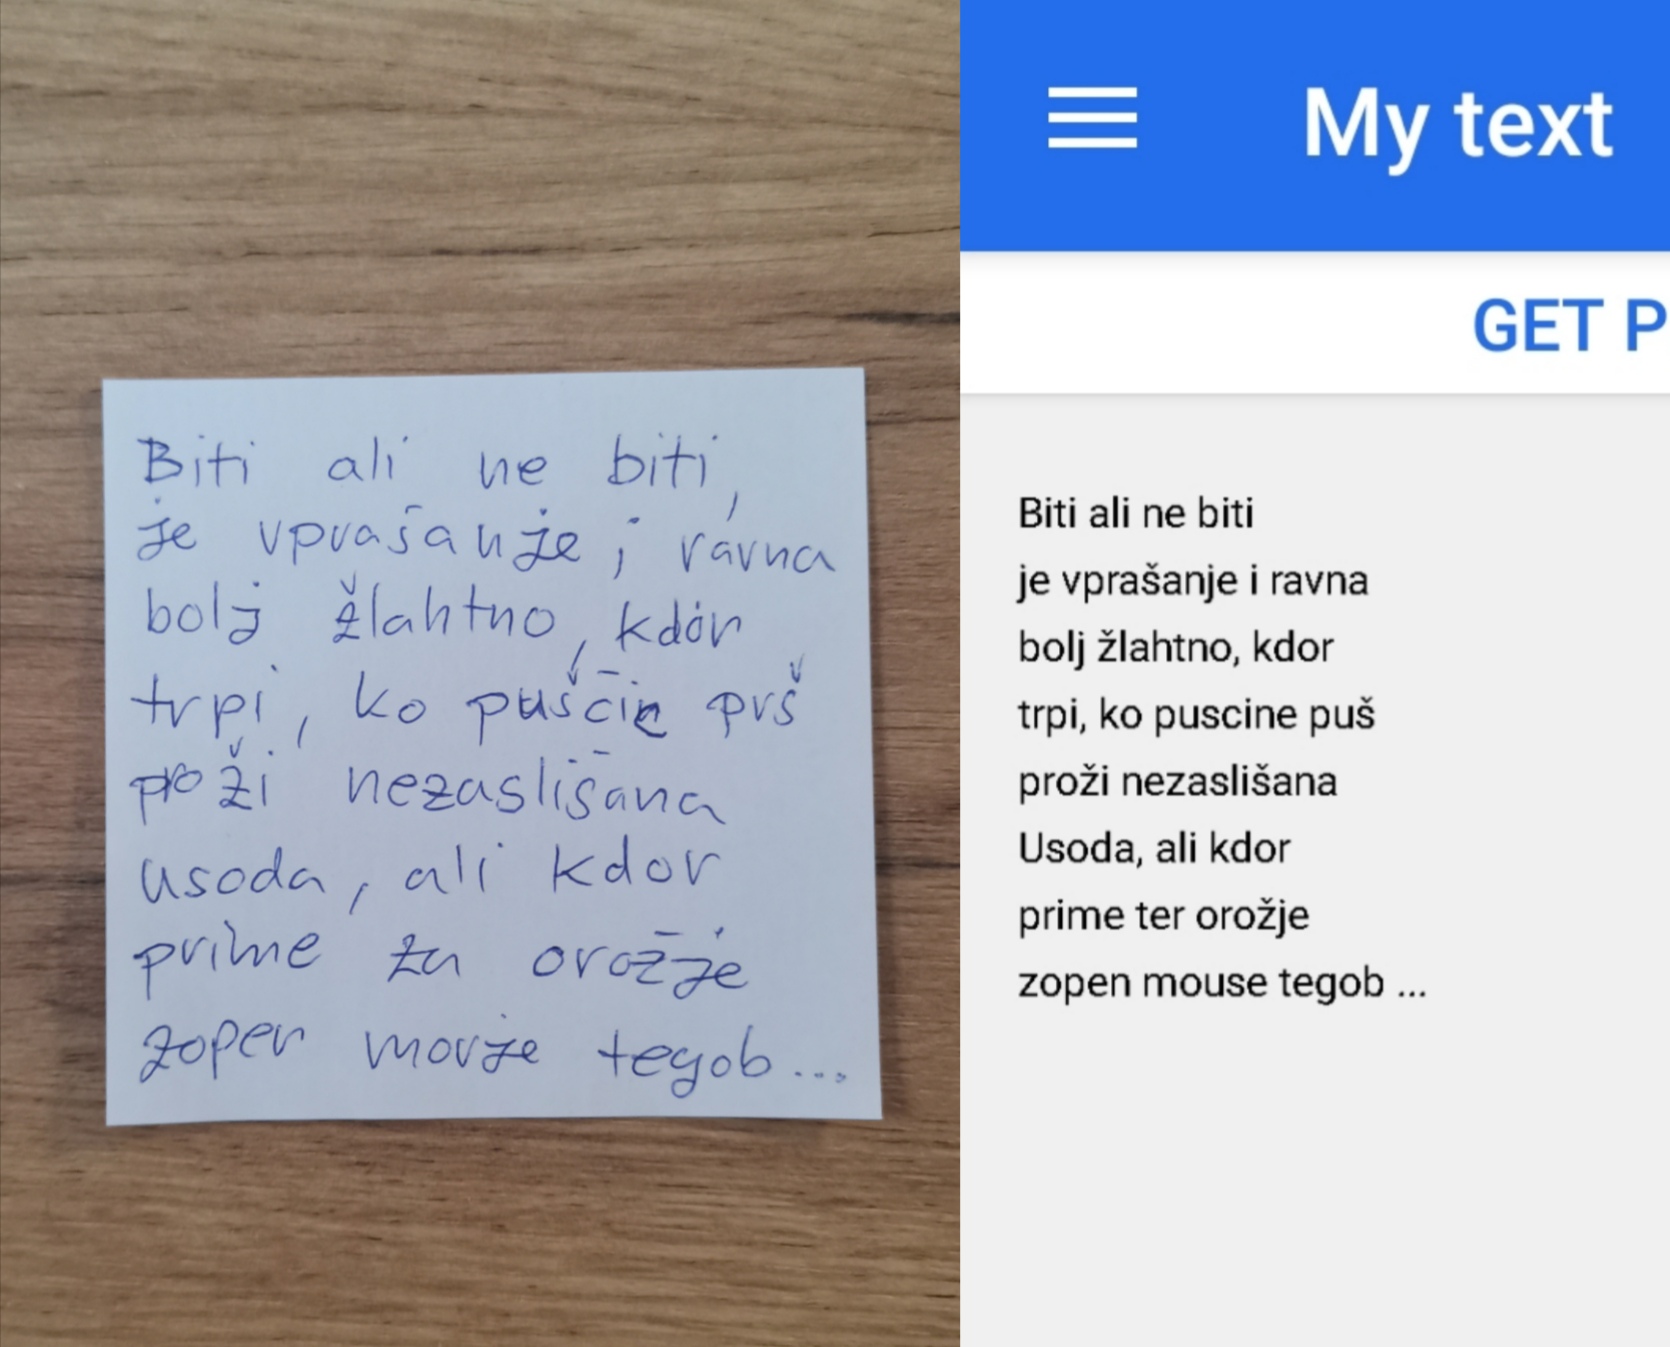 Biti ali ne biti,
je vprašanje; ravna
bolj žlahtno, kdor
trpi, ko puščic prš
proži nezaslišana
usoda, ali kdor
prime za orožje
zoper morje tegob...
My text
GET P
Biti ali ne biti
je vprašanje i ravna
bolj žlahtno, kdor
trpi, ko puscine puš
proži nezaslišana
Usoda, ali kdor
prime ter orožje
zopen mouse tegob ...